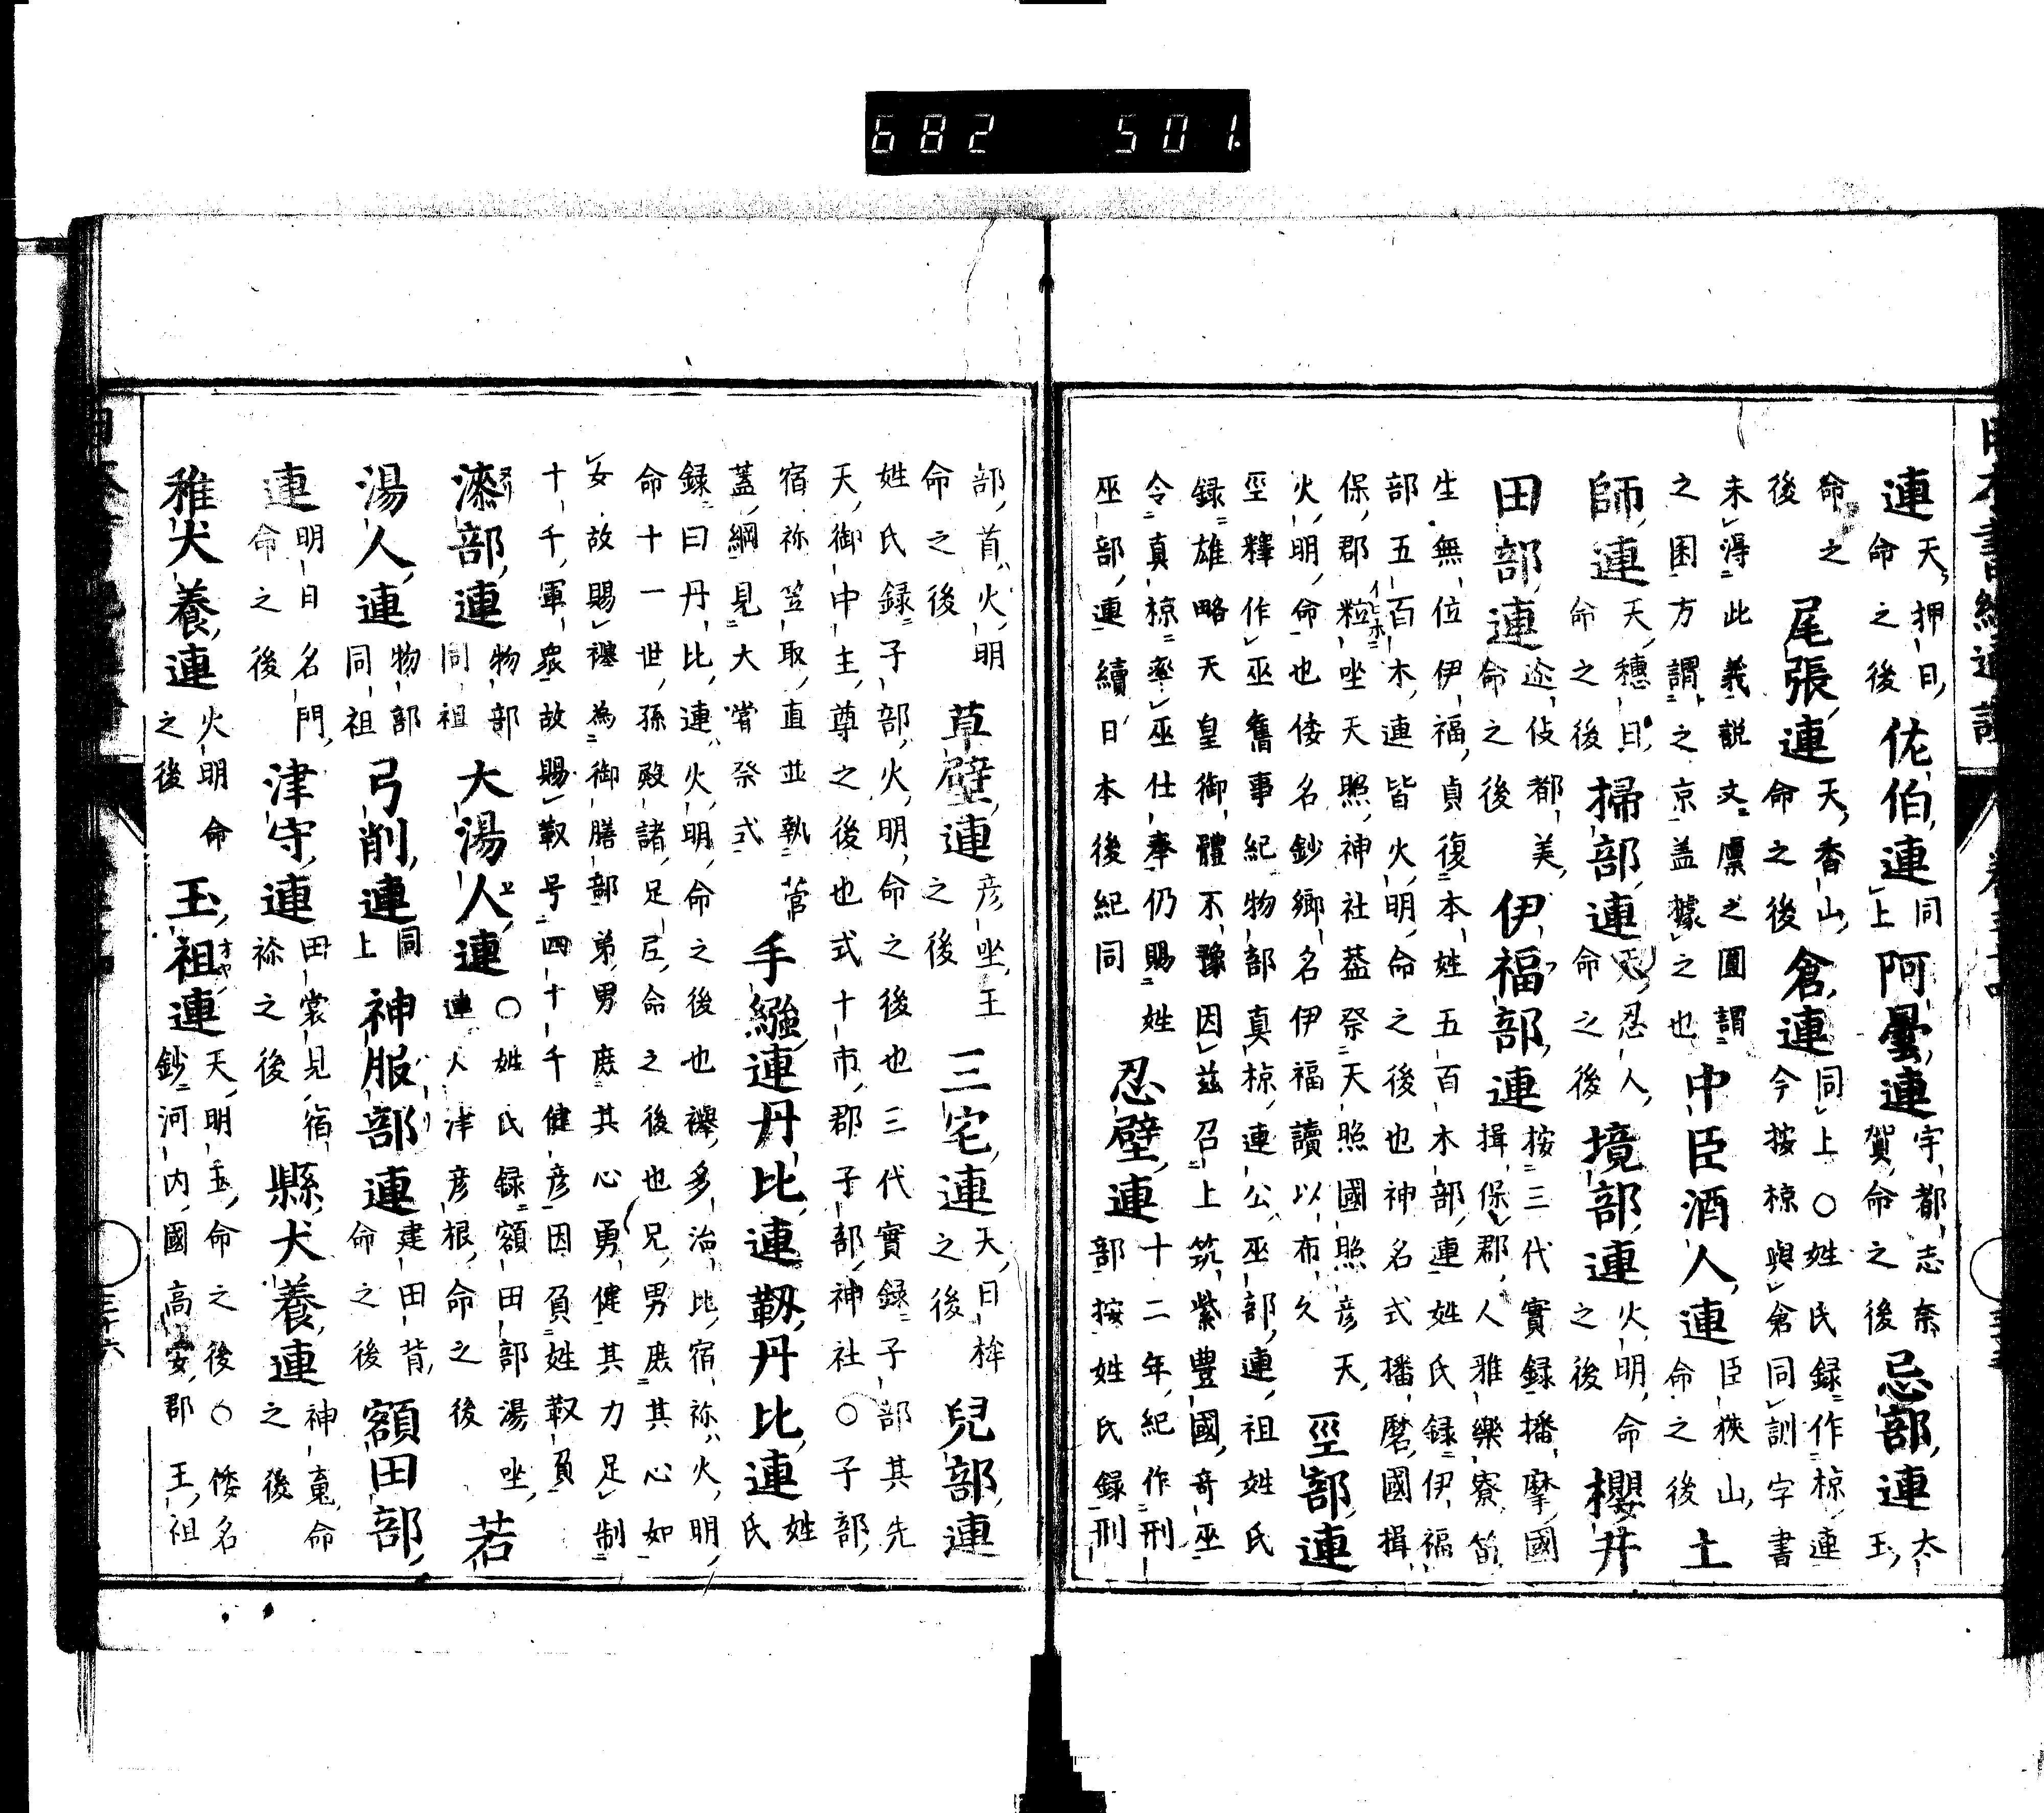 682 501.
連天押日命之後佐伯連同上阿曇連宇都志奈賀命之後忌部連太玉
命之後尾張連天香山命之後倉連同上○姓氏録作椋連今按椋與倉同訓字書
未得此義説文廩之圓謂之囷方謂之京盖據之也中臣酒人連臣狹山命之後土
師連天穗日命之後掃部連天忍人命之後境部連火明命之後櫻井
田部連命之後伊福部連按三代實録播摩國揖保郡人雅樂寮笛
生無位伊福貞復本姓五百木部連姓氏録伊福
部五百木連皆火明命之後也神名式播磨國揖
保郡粒坐天照神社葢祭天照國照彦天
火明命也倭名鈔郷名伊福讀以布久巠部連
巠釋作巫舊事紀物部真椋連公巫部連祖姓氏
録雄略天皇御體不豫因茲召上筑紫豐國奇巫
令真椋率巫仕奉仍賜姓巫部連續日本後紀同
忍壁連十二年紀作刑部按姓氏録刑
部首火明命之後草壁連彦坐王之後三宅連天日桙之後兒部連
姓氏録子部火明命之後也三代實録子部其先
天御中主尊之後也式十市郡子部神社○子部
宿祢笠取直並執菅蓋綱見大嘗祭式手繦連丹比連靱丹比連姓氏
録曰丹比連火明命之後也襷多治比宿祢火明
命十一世孫殿諸足尼命之後也兄男庶其心如
女故賜襷為御膳部弟男庶其心勇健其力足制
十千軍衆故賜靫号四十千健彦因負姓靫負
漆部連物部同祖大湯人連○姓氏録額田部湯坐連人津彦根命之後若
湯人連物部同祖弓削連同上神服部連建田背命之後額田部
連明日名門命之後津守連田裳見宿祢之後縣犬養連神䰟命之後
稚犬養連火明命之後玉祖連天明玉命之後○倭名鈔河内國高安郡玉祖
三十六